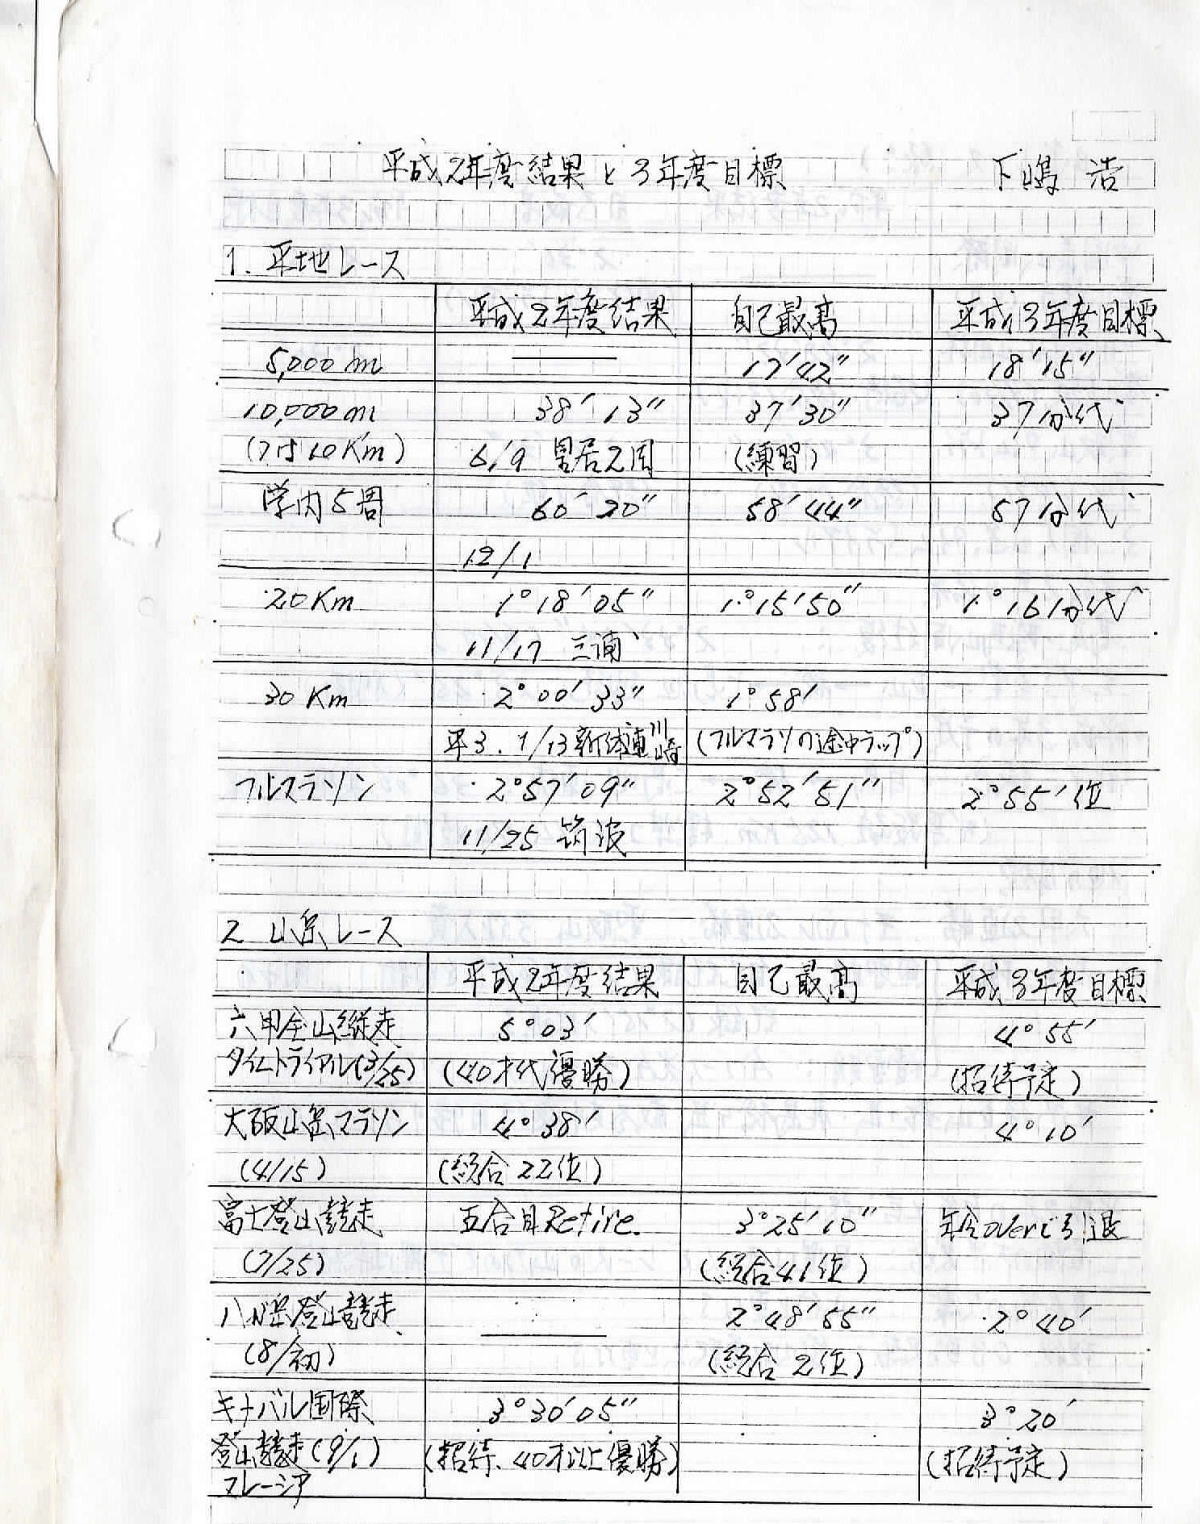 平成2年度結果と3年度目標 下嶋 浩
1. 平地レース
平成2年度結果 自己最高 平成3年度目標
5,000m ― 17′42″ 18′15″
10,000m 38′13″ 37′30″ 37分代
(フは10Km) 6/9 皇居2周 (練習)
学内5周 60′20″ 58′44″ 57分代
12/1
20Km 1°18′05″ 1°15′50″ 1°16分代
11/17 三浦
30Km 2°00′33″ 1°58′
平3.1/13新体連川崎 (フルマラソンの途中ラップ)
フルマラソン 2°57′09″ 2°52′51″ 2°55′位
11/25 筑波
2 山岳レース
平成2年度結果 自己最高 平成3年度目標
六甲全山縦走 5°03′ 4°55′
タイムトライアル(3/25) (40才代優勝) (招待予定)
大阪山岳マラソン 4°38′ 4°10′
(4/15) (総合22位)
富士登山競走 五合目Retire. 3°25′10″ 年令overで引退
(7/25) (総合41位)
八ヶ岳登山競走 ― 2°48′55″ 2°40′
(8/初) (総合2位)
キナバル国際 3°30′05″ 3°20′
登山競走(9/1) (招待、40才以上優勝) (招待予定)
マレーシア